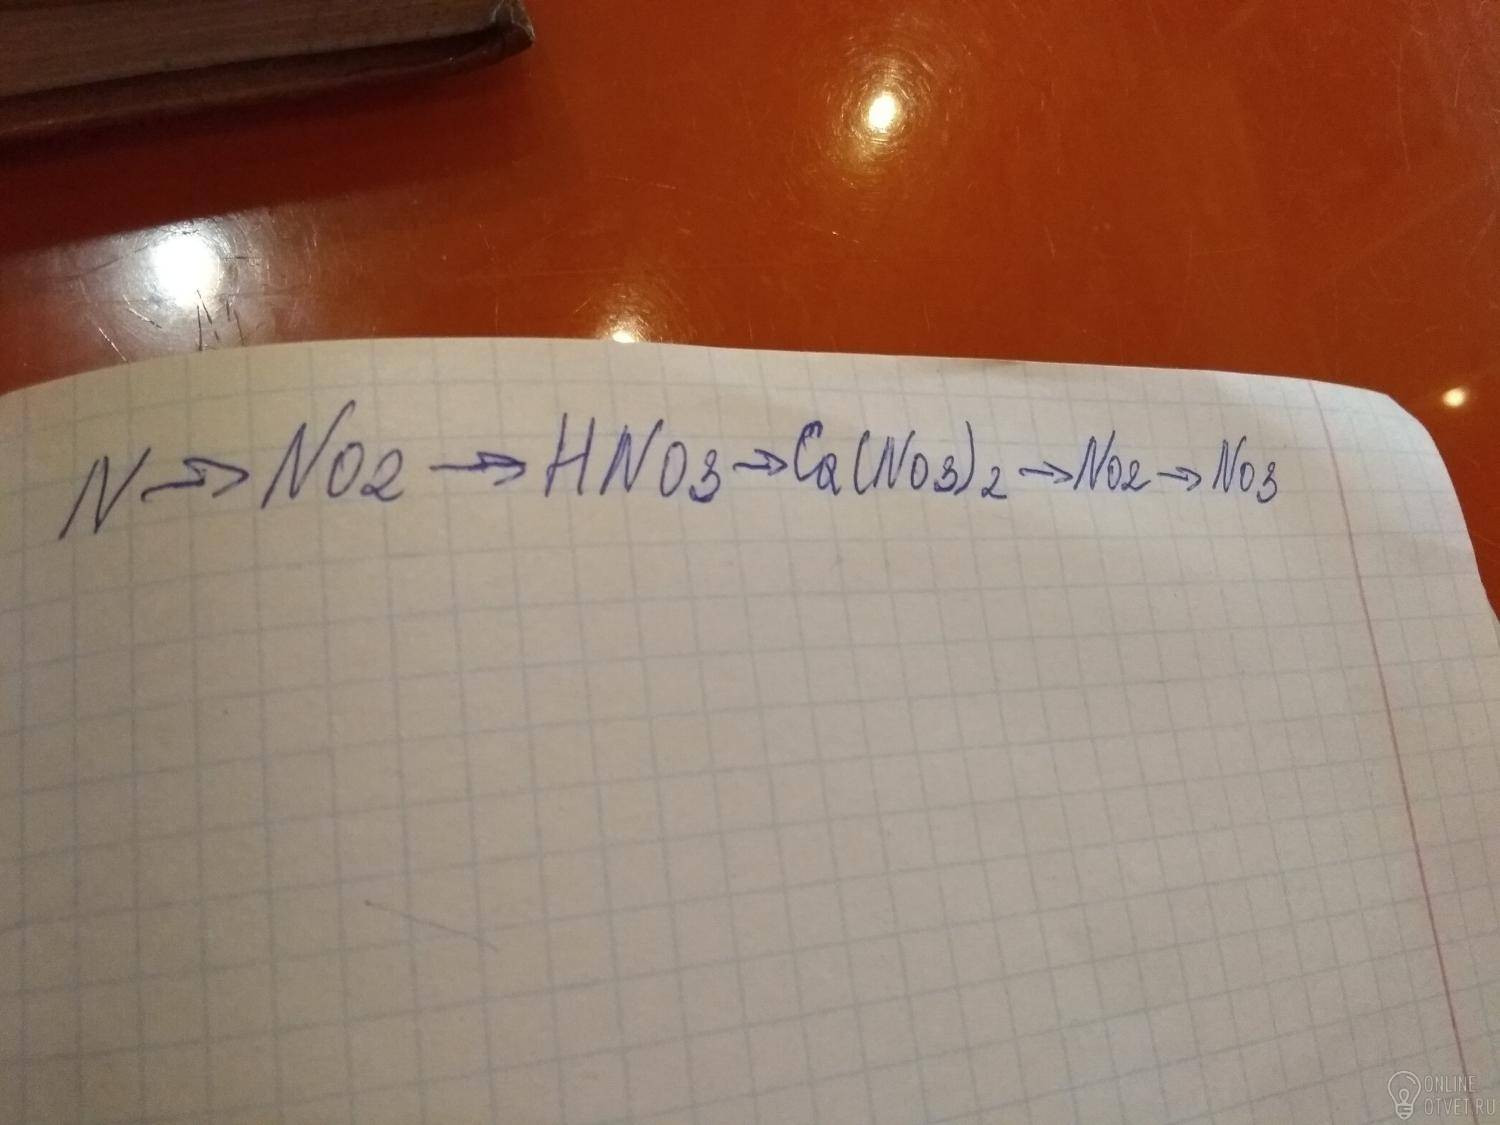 N → NO2 → HNO3 → Ca(NO3)2 → NO2 → NO3
ONLINE
OTVET.RU